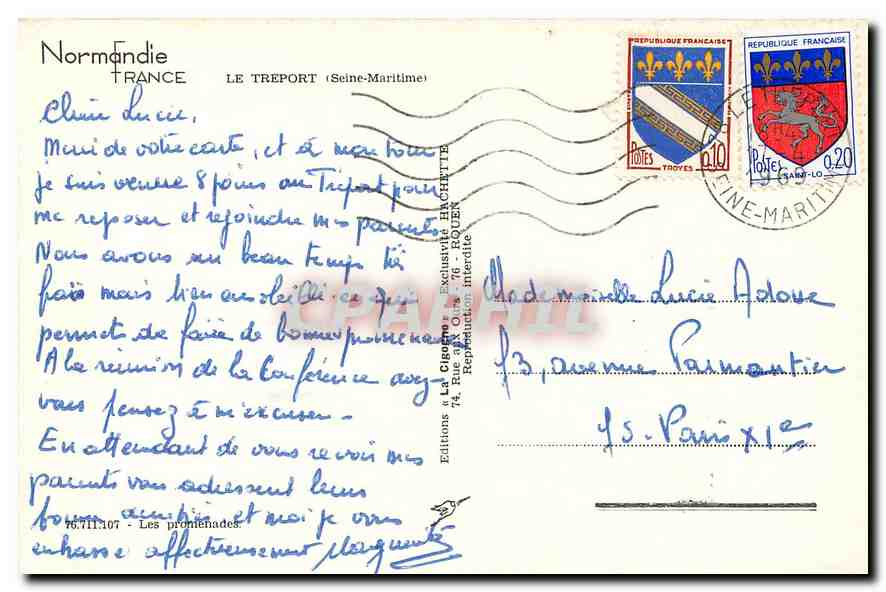 Normandie
FRANCE
LE TREPORT (Seine-Maritime)
Chère Lucie,
Merci de votre carte, et à mon tour
je suis venue 8 jours au Tréport pour
me reposer et rejoindre mes parents.
Nous avons un beau temps très
frais mais bien ensoleillé ce qui
permets de faire de bonnes promenades
A la réunion de la Conférence avez-
vous pensez à m'excuser.
En attendant de vous revoir mes
parents vous adressent leurs
bonnes amitiés et moi je vous
embrasse affectueusement Marguerite
76.711.107 - Les promenades.
Editions « La Cigogne » Exclusivité HACHETTE
74, Rue aux Ours - 76 - ROUEN
Reproduction interdite
REPUBLIQUE FRANCAISE
POSTES 0,10
TROYES
REPUBLIQUE FRANCAISE
POSTES 0,20
SAINT-LO
LE TREPORT
1969
SEINE-MARITIME
Mademoiselle Lucie Adove
13, avenue Parmentier
75 - Paris XIe
CPARHIL